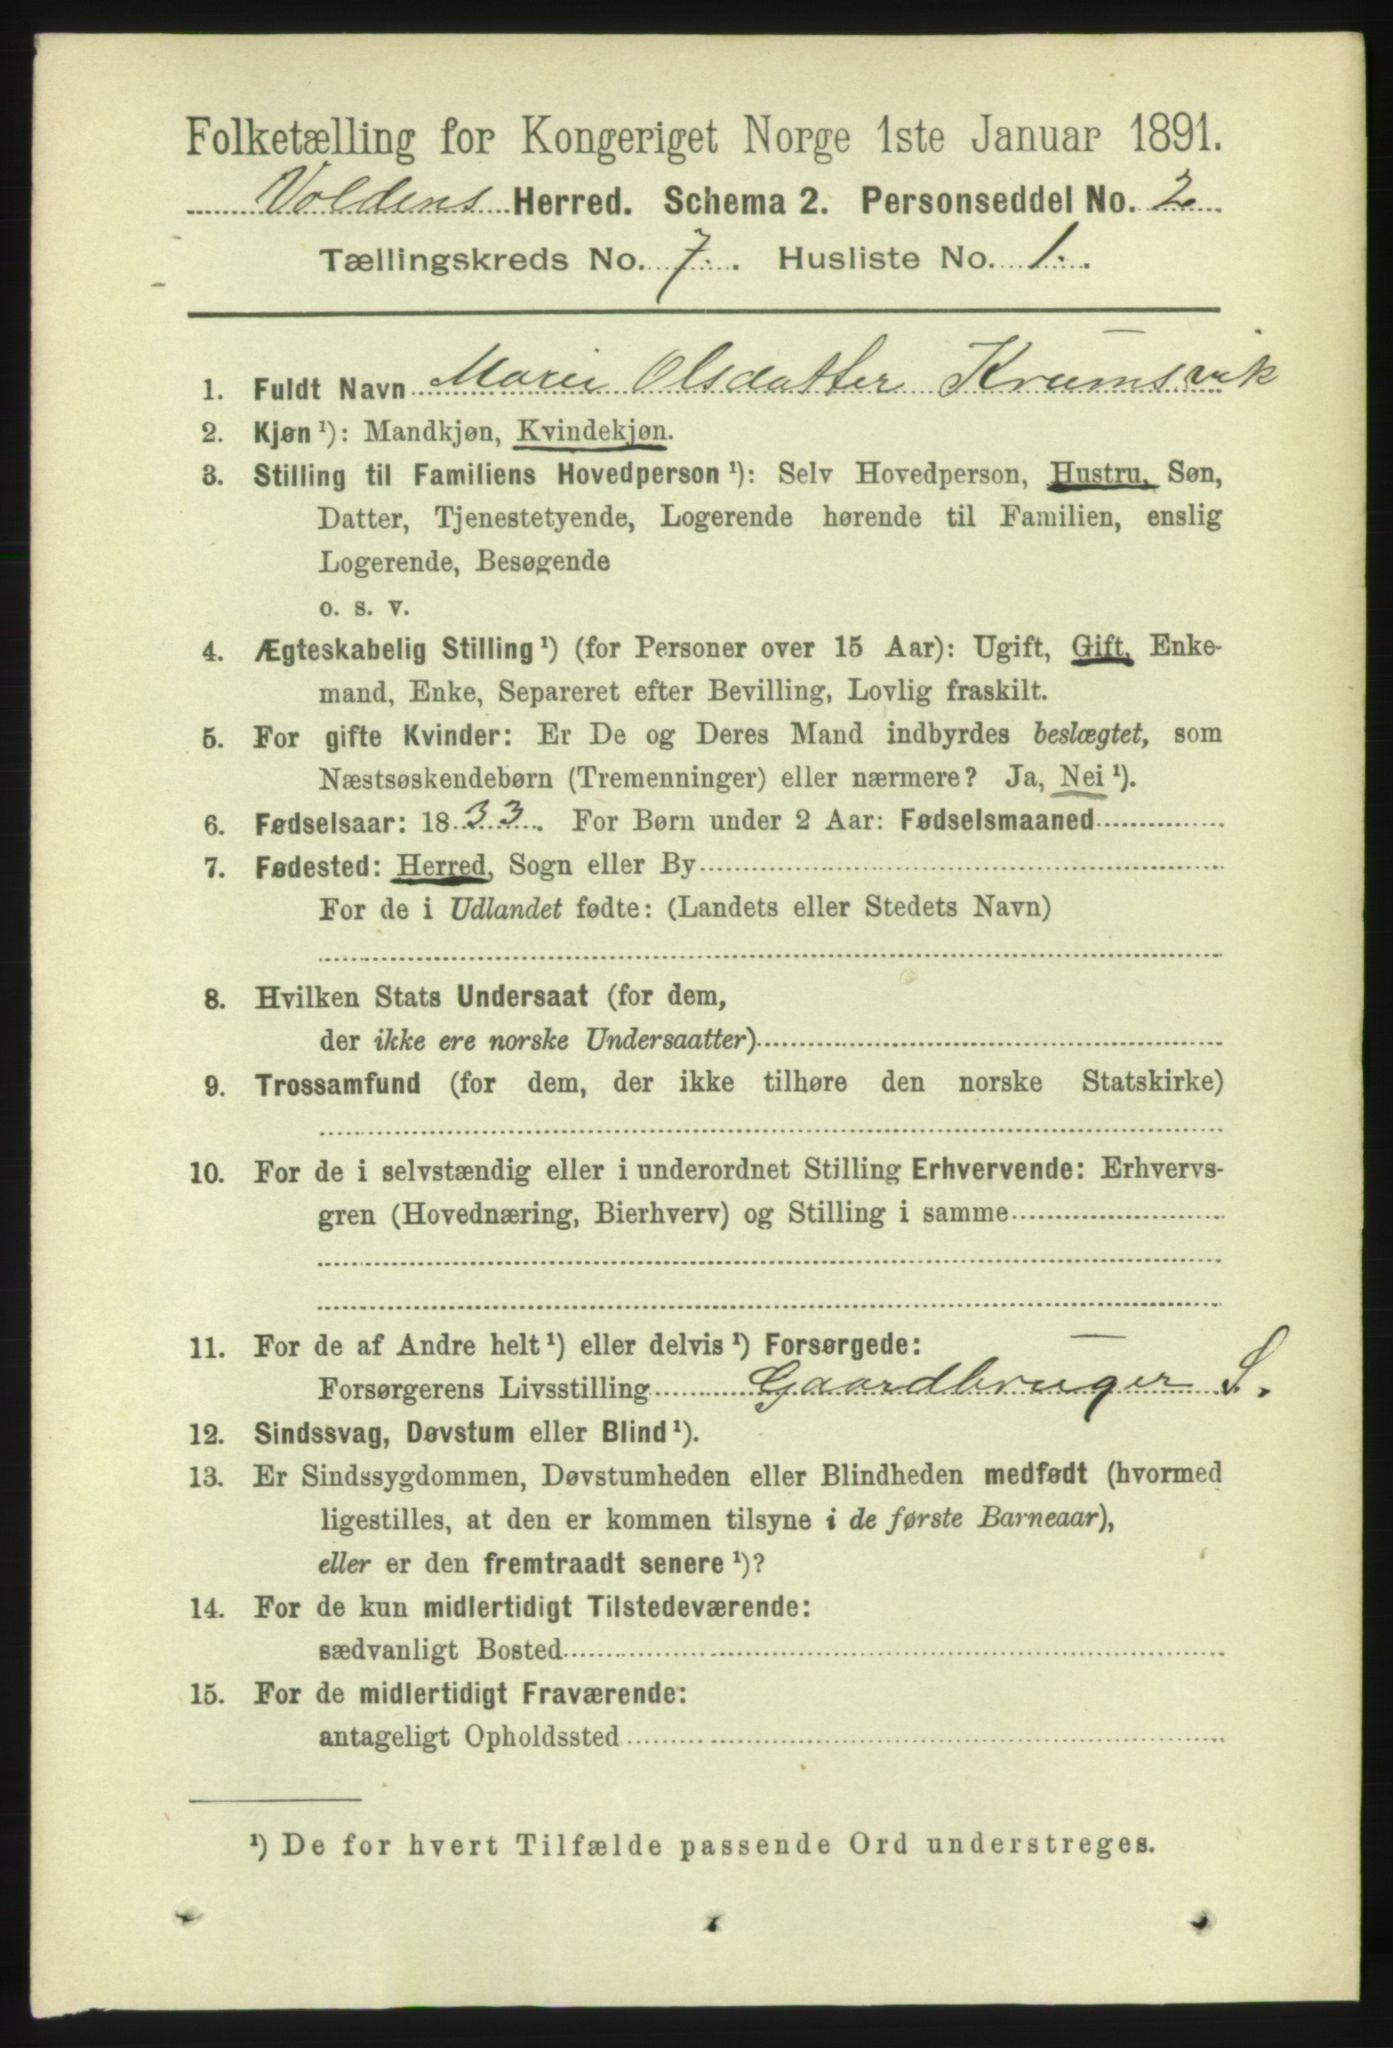 Folketælling for Kongeriget Norge 1ste Januar 1891.
Voldens Herred. Schema 2. Personseddel No. 2
Tællingskreds No. 7. Husliste No. 1.
1. Fuldt Navn Marie Olsdatter Krumsvik
2. Kjøn ¹): Mandkjøn, Kvindekjøn.
3. Stilling til Familiens Hovedperson ¹): Selv Hovedperson, Hustru, Søn,
Datter, Tjenestetyende, Logerende hørende til Familien, enslig
Logerende, Besøgende
o. s. v.
4. Ægteskabelig Stilling ¹) (for Personer over 15 Aar): Ugift, Gift, Enke-
mand, Enke, Separeret efter Bevilling, Lovlig fraskilt.
5. For gifte Kvinder: Er De og Deres Mand indbyrdes beslægtet, som
Næstsøskendebørn (Tremenninger) eller nærmere? Ja, Nei ¹).
6. Fødselsaar: 1833. For Børn under 2 Aar: Fødselsmaaned
7. Fødested: Herred, Sogn eller By
For de i Udlandet fødte: (Landets eller Stedets Navn)
8. Hvilken Stats Undersaat (for dem,
der ikke ere norske Undersaatter)
9. Trossamfund (for dem, der ikke tilhøre den norske Statskirke)
10. For de i selvstændig eller i underordnet Stilling Erhvervende: Erhvervs-
gren (Hovednæring, Bierhverv) og Stilling i samme
11. For de af Andre helt ¹) eller delvis ¹) Forsørgede:
Forsørgerens Livsstilling Gaardbruger S.
12. Sindssvag, Døvstum eller Blind ¹).
13. Er Sindssygdommen, Døvstumheden eller Blindheden medfødt (hvormed
ligestilles, at den er kommen tilsyne i de første Barneaar),
eller er den fremtraadt senere ¹)?
14. For de kun midlertidigt Tilstedeværende:
sædvanligt Bosted
15. For de midlertidigt Fraværende:
antageligt Opholdssted
¹) De for hvert Tilfælde passende Ord understreges.